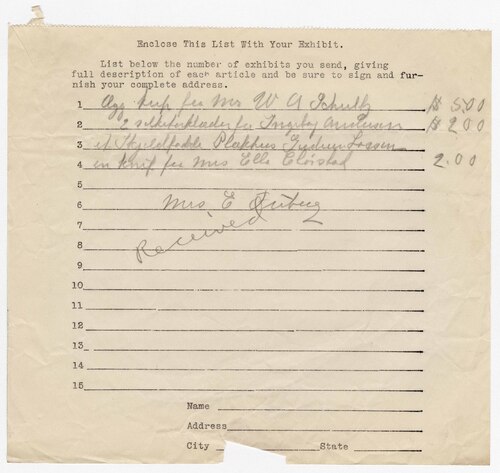 Enclose This List With Your Exhibit.
List below the number of exhibits you send, giving
full description of each article and be sure to sign and fur-
nish your complete address.
1 kniv fra Mrs W A Schultz $ 5.00
2 2 fra Ingeborg $ 2.00
3 et
4 en knif fra Mrs Ella 2.00
5
6 Mrs E
7
Received
8
9
10
11
12
13
14
15
Name
Address
City State